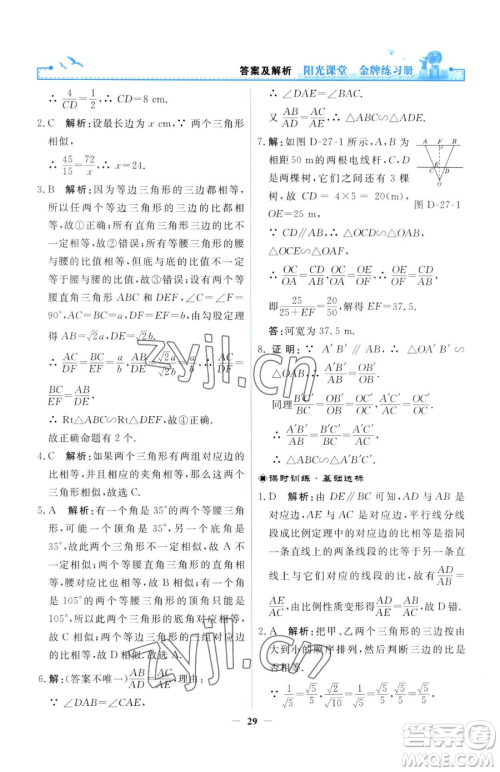 答案及解析 阳光课堂 金牌练习册
∴ 4/CD=1/2，∴ CD=8 cm.
2. C 解析：设最长边为 x cm，∵ 两个三角形
相似，
∴ 45/15=72/x，∴ x=24.
3. B 解析：因为等边三角形的三边都相等，
所以任两个等边三角形的三边的比都相
等，故①正确；所有直角三角形三边的比不
一定相等，故②错误；所有等腰三角形的腰
与腰的比值相等，但底与底的比值不一定
与腰的比值相等，故③错误；设∠C=∠F=
90°，AC=BC=a，DF=EF=b，两个
等腰直角三角形 ABC 和 DEF，由勾股定理
得 AB=√2a，DE=√2b，
∴ AC/DF=BC/EF=a/b，AB/DE=√2a/√2b=a/b，∴ AC/DF=
BC/EF=AB/DE，
∴ Rt△ABC∽Rt△DEF，故④正确.
故正确命题有 2 个.
4. C 解析：如果两个三角形有两组对应边的
比相等，并且相等的夹角相等，那么这两个
三角形相似，故选 C.
5. A 解析：有一个角是 35°的两个等腰三角
形，可能一个顶角是 35°，另一个底角是
35°，故此两个三角形不相似，故 A 不相似，
故选 A；两个等腰直角三角形的对应角相
等，腰对应成比例，故 B 相似；各有一个角
是 105°的两个等腰三角形，此角必为顶角
105°，其余两角相等，故 C 相似；各有一个
角是 60°的两个等腰三角形的三组对应角
相等，故 D 相似.故选 A.
6. 解：(答案不唯一)AB/AD=AC/AE.理由：
∵ ∠DAB=∠CAE，
∴ ∠DAE=∠BAC.
又 AB/AD=AC/AE，∴ △ABC∽△ADE.
7. 解：如图 D-27-1 所示，∵ A,B 为
相距 50 m 的两根电线杆，C,D 为
两棵树，它们之间还有 3 棵树，
∴ CD = 4×5 = 20(m)，
OE=25 m，
图 D-27-1
∵ CD∥AB，∴ △OCD∽△OAB，
∴ OC/OA=CD/AB，∵ OC/OA=OE/OF，∴ OE/OF=CD/AB，
即 25/(25+EF)=20/50，解得 EF=37.5.
答：河宽为 37.5 m.
8. 证明：∵ A′B′∥AB，∴ △OA′B′∽
△OAB，∴ A′B′/AB=OB′/OB=OA′/OA.
同理 B′C′/BC=OC′/OC=OB′/OB，A′C′/AC=OA′/OA=OC′/OC，
∴ A′B′/AB=B′C′/BC=A′C′/AC，
∴ △ABC∽△A′B′C′.
课时训练·基础达标
1. D 解析：由 DE∥BC 可知，AD 与 AB 是
对应边，AE 与 AC 是对应边，平行线分线
段成比例定理中的对应线段的比是指同
一条直线上的两个线段的比等于另一条直
线上与它们对应的线段的比，故 AD/AB=
AE/AC，由比例性质可得 AD/AE=AB/AC，故 D 错.
2. A 解析：把甲、乙两个三角形的三边按由
大到小的顺序排列，然后判断三边的比是
否相等.
∵ 1/√5=√5/5，√2/√10=√5/5，√5/5=√5/5，
29
zyjl.cn
zyjl.cn